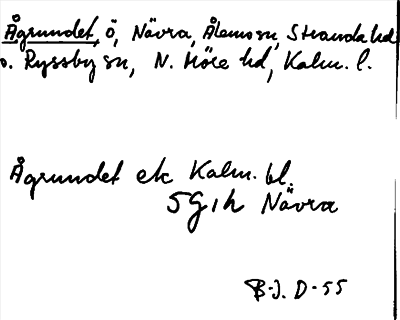 Ågrundet, ö, Nävra, Ålems sn, Stranda hd
o. Ryssby sn, N. Möre hd, Kalm. l.
Ågrundet ek Kalm. bl.
5G1h Nävra
B-J. D-55